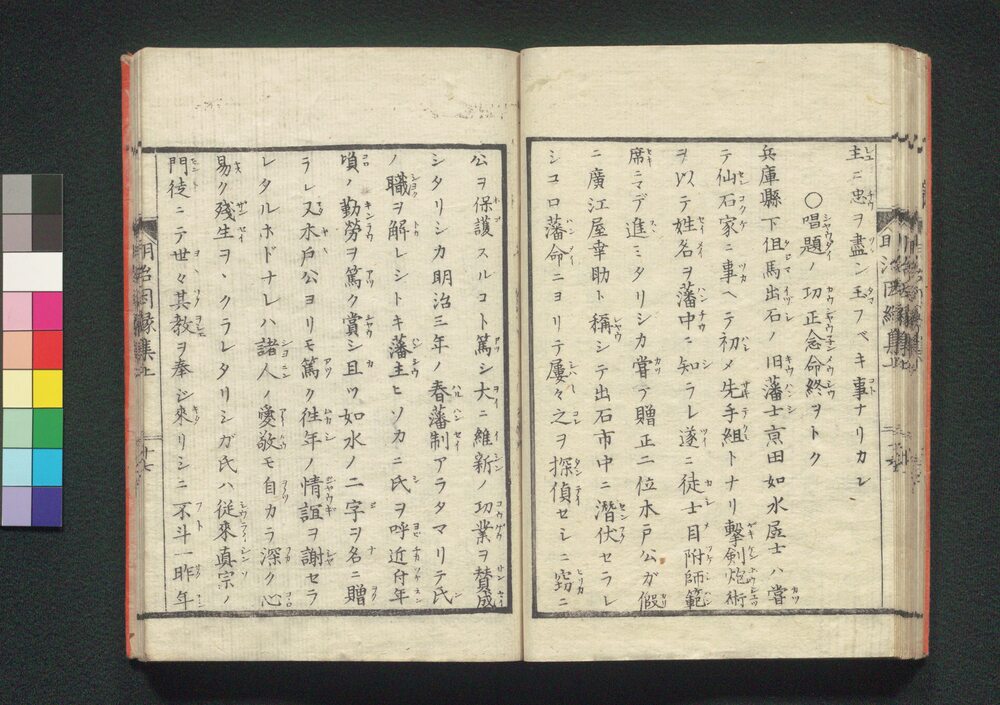 主ニ忠ヲ盡シ玉フベキ事ナリカレ
〇唱題ノ功正念命終ヲトク
兵庫縣下但馬出石ノ旧藩士京田如水居士ハ嘗
テ仙石家ニ事ヘテ初メ先手組トナリ擊劍炮術
ヲ以テ姓名ヲ藩中ニ知ラレ遂ニ徒士目附師範
席ニマデ進ミタリシカ嘗テ贈正二位水戸公ガ假
ニ廣江屋幸助ト稱シテ出石市中ニ潜伏セラレ
シコロ藩命ニヨリテ屢々之ヲ探偵セシニ窃ニ
公ヲ保護スルコト篤シ大ニ維新ノ功業ヲ賛成
シタリシカ明治三年ノ春藩制アラタマリテ氏
ノ職ヲ解レシトキ藩主ヒソカニ氏ヲ呼近付年
頃ノ勤勞ヲ篤ク賞シ且ツ如水ノ二字ヲ名ニ贈
ラレ又木戸公ヨリモ篤ク徃年ノ情誼ヲ謝セラ
レタルホドナレハ諸人ノ愛敬モ自カラ深ク心
易ク殘生ヲヽクラレタリシガ氏ハ従來真宗ノ
門徒ニテ世々其教ヲ奉シ來リシニ不斗一昨年
明治因縁集上
十七